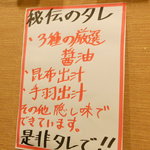 秘伝のタレ
・3種の厳選
醤油
・昆布出汁
・手羽出汁
その他隠し味で
できています。
是非タレで!!